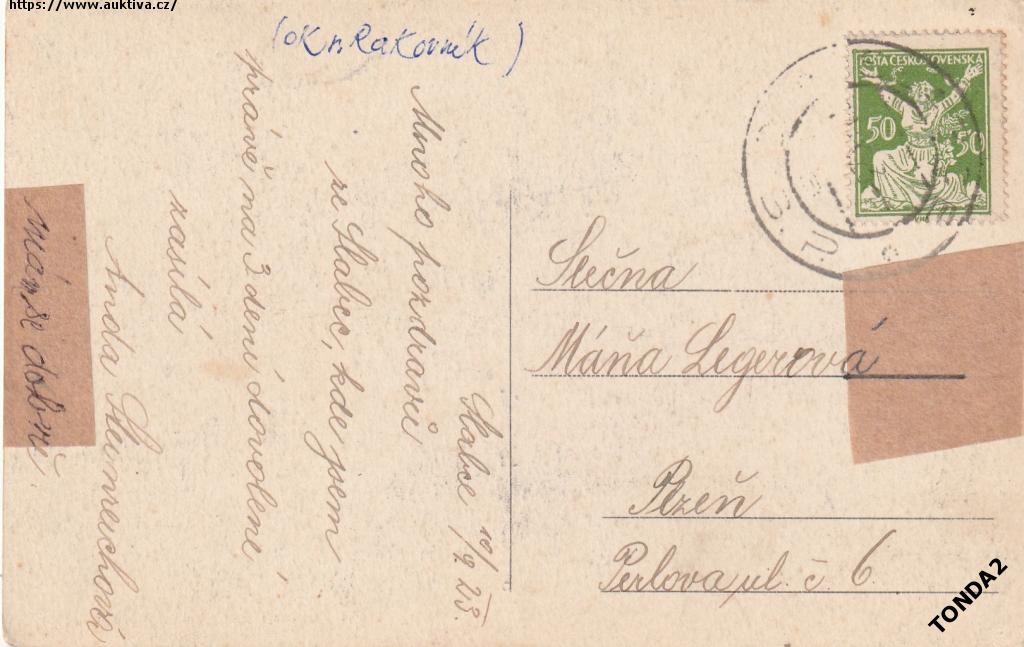 https://www.auktiva.cz/
(ok n Rakovník)
POŠTA ČESKOSLOVENSKA
50 50
Slabce 10/9 23.
Mnoho pozdravů
ze Slabec, kde jsem
právě na 3 denní dovolené
zasílá
Anda
mám se dobře.
Slečna
Máňa Legerová
Plzeň
Perlova ul. č. 6
TONDA2